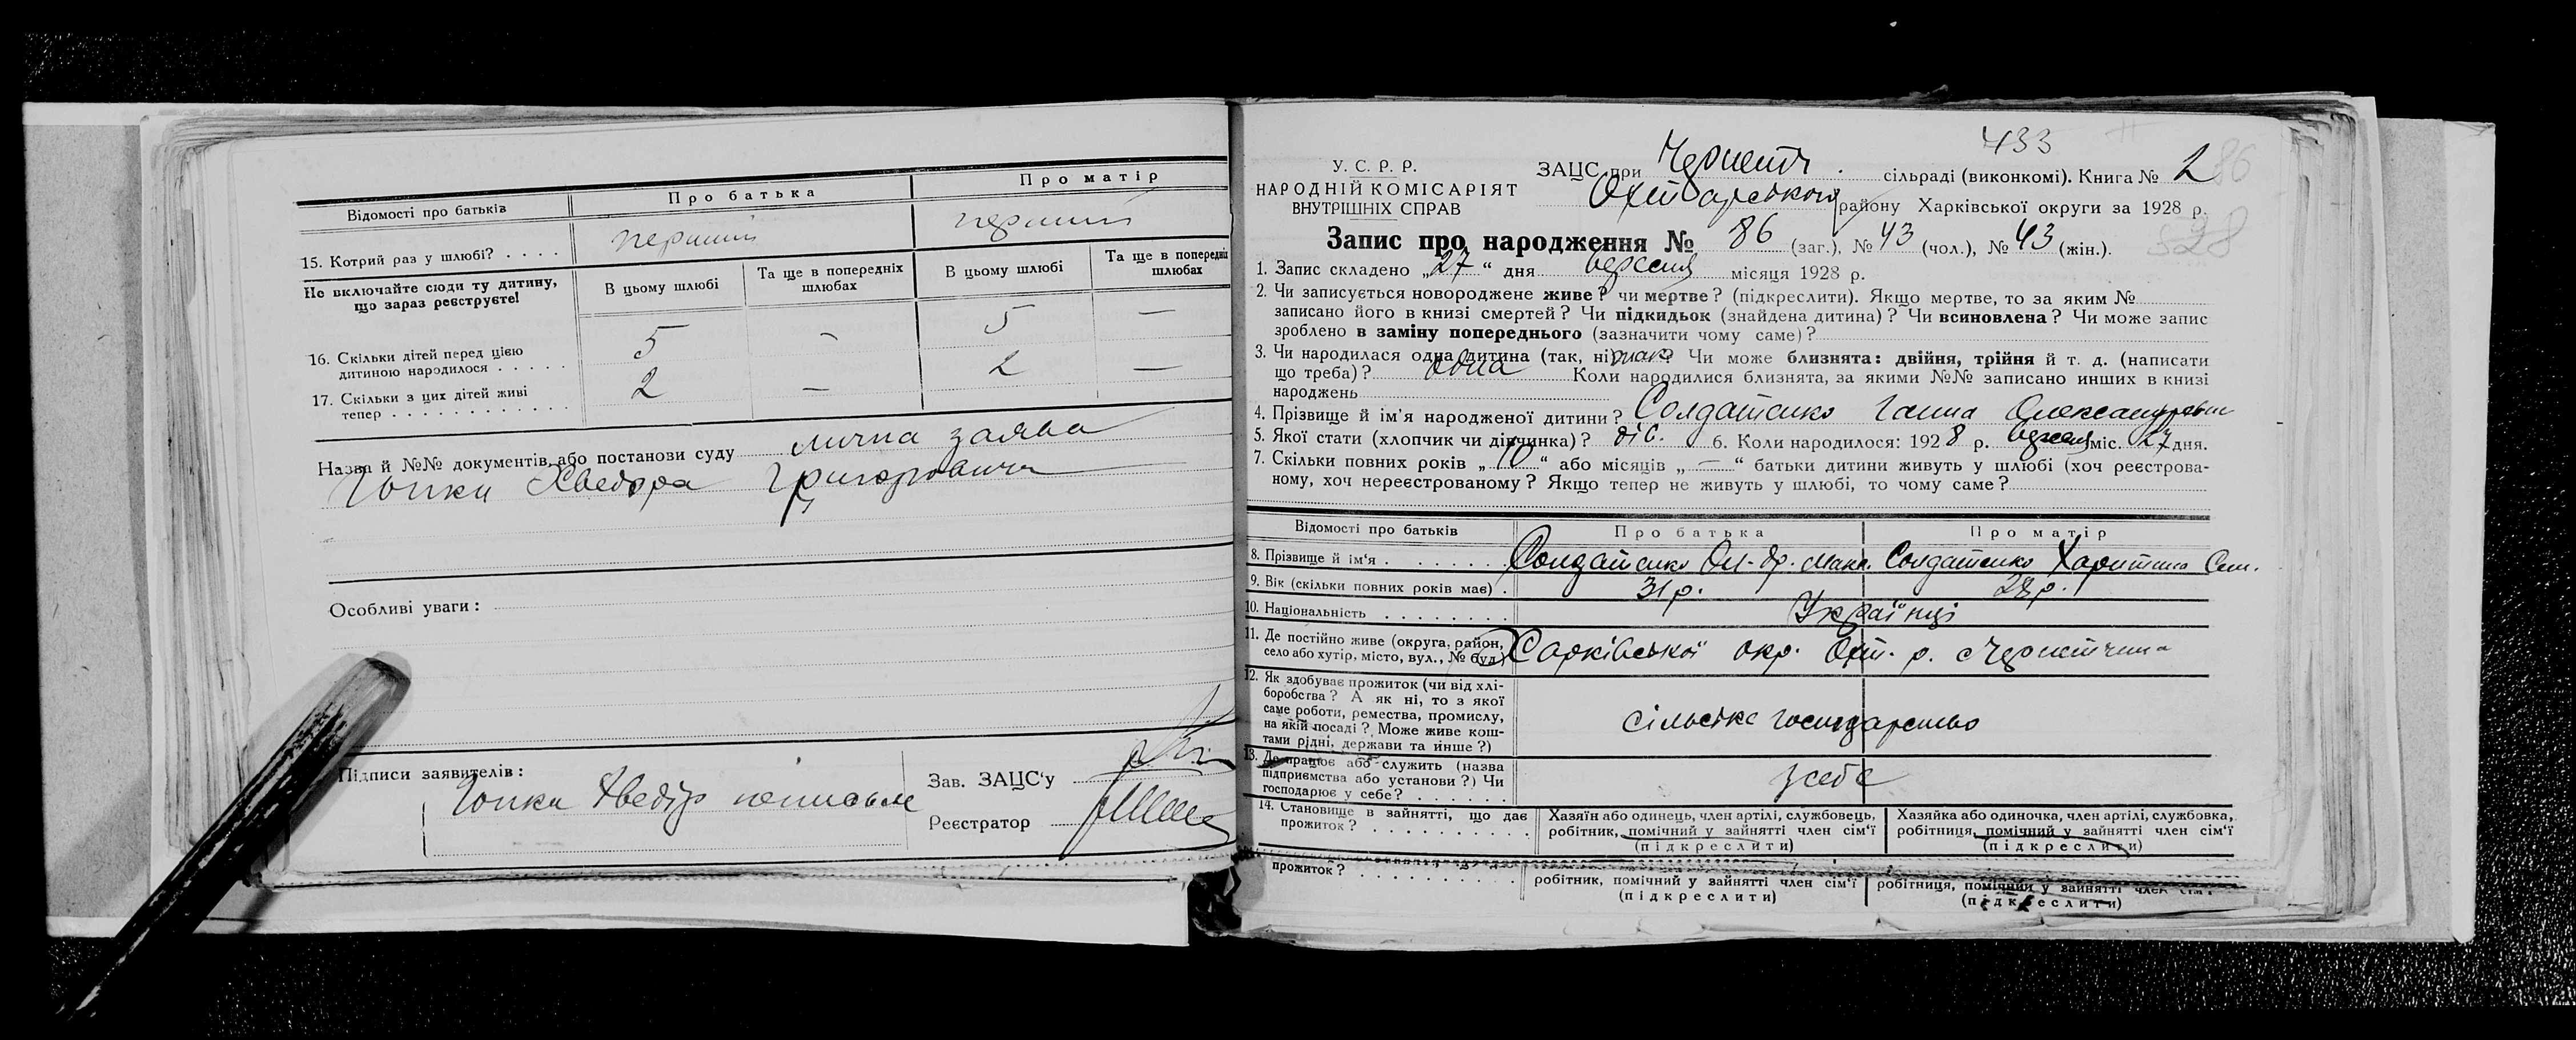 Відомості про батьків
Про батька
Про матір
15. Котрий раз у шлюбі? . . . .
перший
перший
Не включайте сюди ту дитину,
що зараз реєструєте!
В цьому шлюбі
Та ще в попередніх
шлюбах
В цьому шлюбі
Та ще в попередніх
шлюбах
16. Скільки дітей перед цією
дитиною народилося . . . . .
5
–
5
—
17. Скільки з цих дітей живі
тепер . . . . . . . . . . . .
2
—
2
—
Назва й №№ документів або постанови суду лична заява
Гопки Хведора Григоровича
Особливі уваги:
Підписи заявителів:
Гопка Хведір
Зав. ЗАЦС'у
Реєстратор
433
У. С. Р. Р.
НАРОДНІЙ КОМІСАРІЯТ
ВНУТРІШНІХ СПРАВ
ЗАЦС при Чернетч. сільраді (виконкомі). Книга № 2
86
Охтирського району Харківської округи за 1928 р.
328
Запис про народження № 86 (заг.), № 43 (чол.), № 43 (жін.).
1. Запис складено „27“ дня вересня місяця 1928 р.
2. Чи записується новороджене живе? чи мертве? (підкреслити). Якщо мертве, то за яким №
записано його в книзі смертей? Чи підкидьок (знайдена дитина)? Чи всиновлена? Чи може запис
зроблено в заміну попереднього (зазначити чому саме)?
3. Чи народилася одна дитина (так, ні) так? Чи може близнята: двійня, трійня й т. д. (написати
що треба)? одна Коли народилися близнята, за якими №№ записано инших в книзі
народжень
4. Прізвище й ім'я народженої дитини? Солдатенко Ганна Олександровна
5. Якої стати (хлопчик чи дівчинка)? дів. 6. Коли народилося: 1928 р. вересня міс. 27 дня.
7. Скільки повних років „10“ або місяців „—“ батьки дитини живуть у шлюбі (хоч реєстрова-
ному, хоч нереєстрованому? Якщо тепер не живуть у шлюбі, то чому саме?
Відомості про батьків
Про батька
Про матір
8. Прізвище й ім'я . . . . . . .
Солдатенко Ол-др. Мак.
Солдатенко Харитина Сем.
9. Вік (скільки повних років має) .
31 р.
28 р.
10. Національність . . . . . . . .
Українці
11. Де постійно живе (округа, район,
село або хутір, місто, вул., № буд.)
Харківської окр. Охт. р. с Чернетчина
12. Як здобуває прожиток (чи від хлі-
боробства? А як ні, то з якої
саме роботи, ремества, промислу,
на якій посаді? Може живе кош-
тами рідні, держави та инше?)
сільське господарство
13. Де працює або служить (назва
підприємства або установи?) Чи
господарює у себе? . . . . . .
у себе
14. Становище в зайнятті, що дає
прожиток? . . . . . . . . . .
Хазяїн або одинець, член артілі, службовець,
робітник, помічний у зайнятті член сім'ї
(підкреслити)
Хазяйка або одиночка, член артілі, службовка,
робітниця, помічний у зайнятті член сім'ї
(підкреслити)
прожиток? . . . . . . . . . .
робітник, помічний у зайнятті член сім'ї
(підкреслити)
робітниця, помічний у зайнятті член сім'ї
(підкреслити)